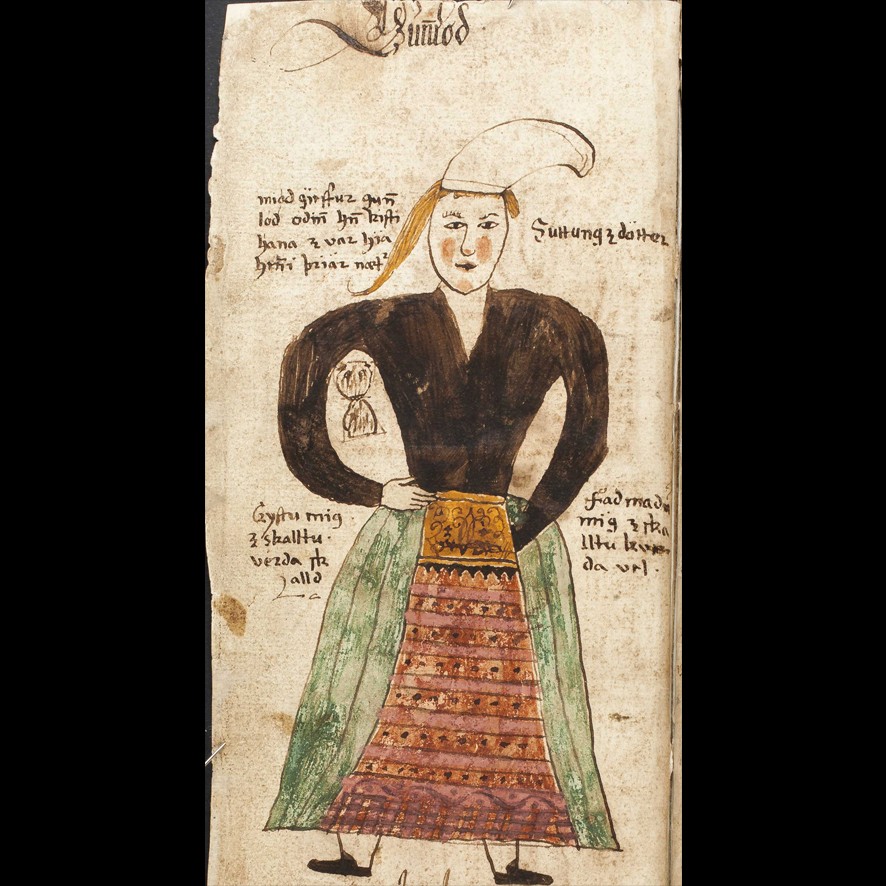 Gunnlod
miad gieffur gun̄
lod odin̄ hn̄ kisti
hana ꝛ var hia
hen̄i þriär nætr
Suttungz dótter
Gystu mig
ꝛ skalltu
verda sk
alld
Fad mad
mig ꝛ ska
lltu kve
da vel